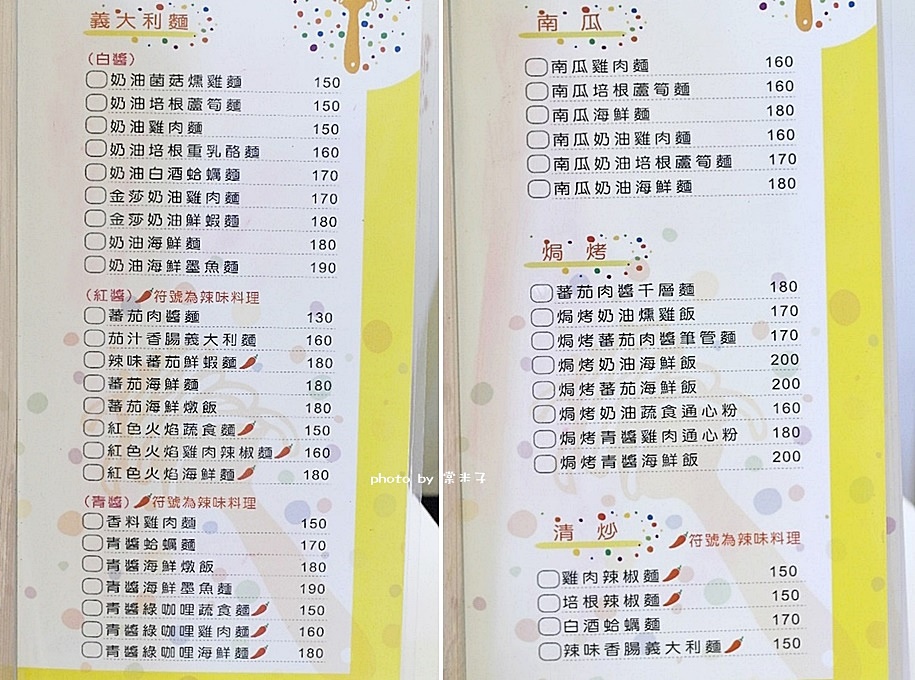 義大利麵
(白醬)
奶油菌菇燻雞麵 150
奶油培根蘆筍麵 150
奶油雞肉麵 150
奶油培根重乳酪麵 160
奶油白酒蛤蠣麵 170
金莎奶油雞肉麵 170
金莎奶油鮮蝦麵 180
奶油海鮮麵 180
奶油海鮮墨魚麵 190
(紅醬) 符號為辣味料理
蕃茄肉醬麵 130
茄汁香腸義大利麵 160
辣味蕃茄鮮蝦麵 180
蕃茄海鮮麵 180
蕃茄海鮮燉飯 180
紅色火焰蔬食麵 150
紅色火焰雞肉辣椒麵 160
紅色火焰海鮮麵 180
(青醬) 符號為辣味料理
香料雞肉麵 150
青醬蛤蠣麵 170
青醬海鮮燉飯 180
青醬海鮮墨魚麵 190
青醬綠咖哩蔬食麵 150
青醬綠咖哩雞肉麵 160
青醬綠咖哩海鮮麵 180
南瓜
南瓜雞肉麵 160
南瓜培根蘆筍麵 160
南瓜海鮮麵 180
南瓜奶油雞肉麵 160
南瓜奶油培根蘆筍麵 170
南瓜奶油海鮮麵 180
焗烤
蕃茄肉醬千層麵 180
焗烤奶油燻雞飯 170
焗烤蕃茄肉醬筆管麵 170
焗烤奶油海鮮飯 200
焗烤蕃茄海鮮飯 200
焗烤奶油蔬食通心粉 160
焗烤青醬雞肉通心粉 180
焗烤青醬海鮮飯 200
清炒
符號為辣味料理
雞肉辣椒麵 150
培根辣椒麵 150
白酒蛤蠣麵 170
辣味香腸義大利麵 150
photo by